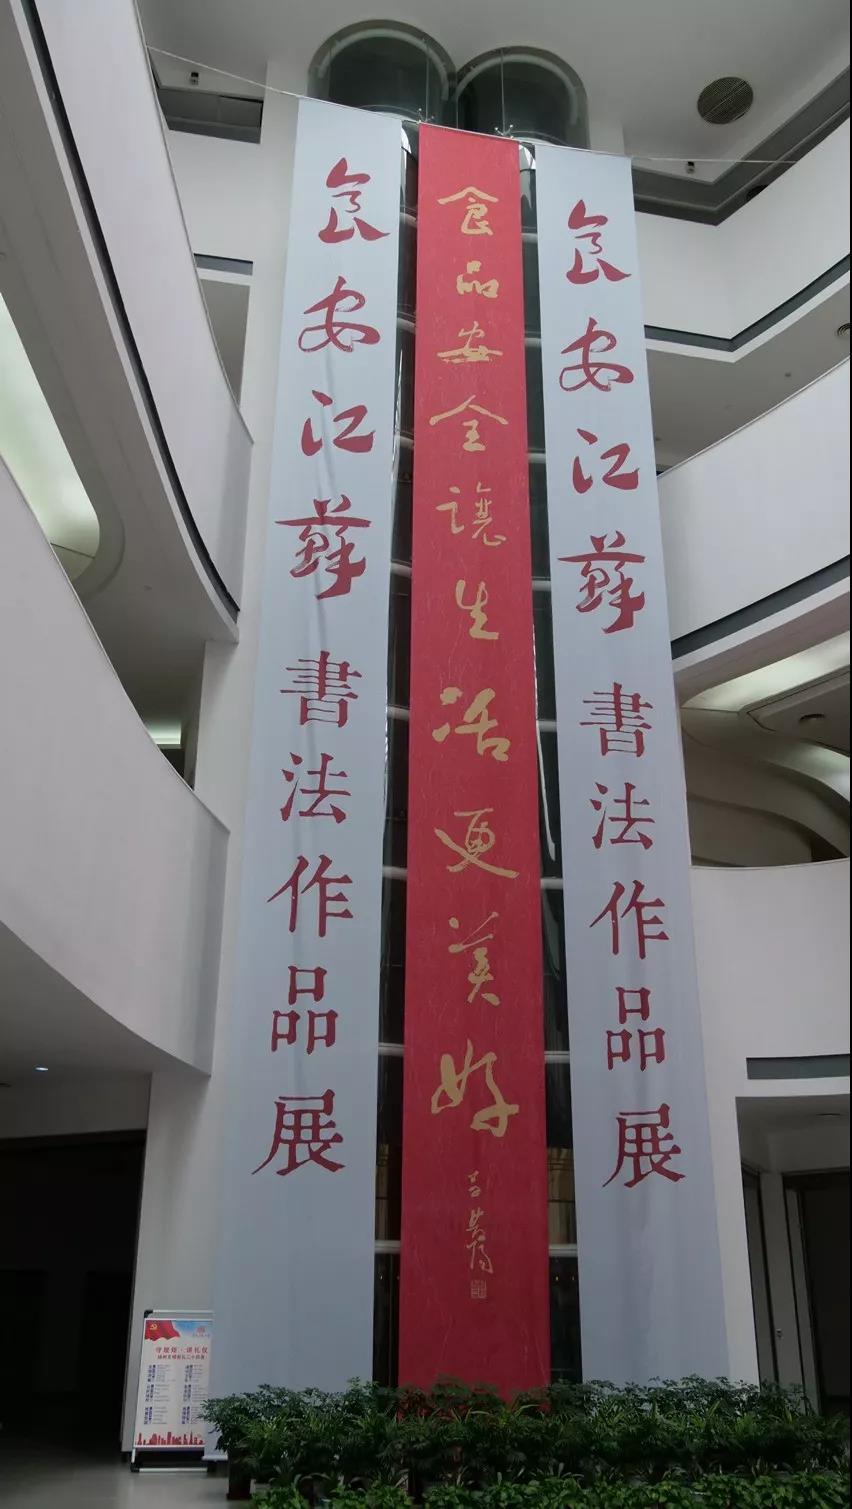 食安江蘇書法作品展
食品安全讓生活更美好
食安江蘇書法作品展
守规矩·讲礼仪